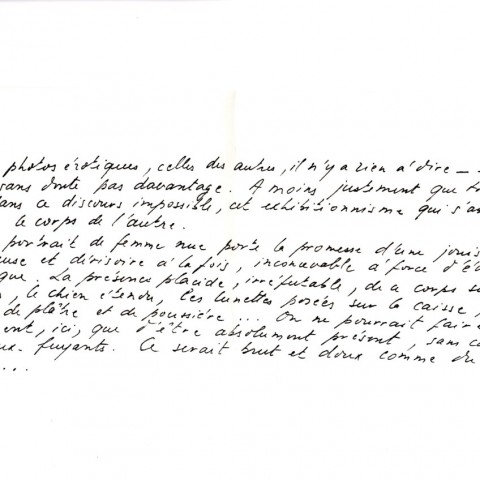 photos érotiques, celles des autres, il n'y a rien à dire –
sans doute pas davantage. A moins justement que
ce discours impossible, cet exhibitionnisme qui
le corps de l'autre.
portrait de femme nue porte la promesse d'une
et dérisoire à la fois, inconcevable à force
La présence placide, irréfutable, de ce corps
, le chien étendu, les lunettes posées sur la caisse,
de plâtre et de poussière... On ne pourrait faire
ici, que d'être absolument présent, sans
fuyants. Ce serait brut et doux comme du
...